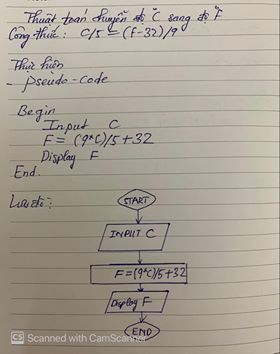 Thuật toán chuyển độ °C sang độ °F
Công thức: C/5 = (F-32)/9
Thực hiện
- pseudo-code
Begin
Input C
F = (9*C)/5 + 32
Display F
End.
Lưu đồ:
START
INPUT C
F = (9*C)/5 + 32
Display F
END
CS Scanned with CamScanner